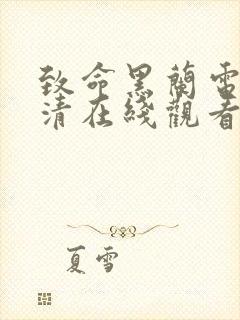 致命黑蘭電
清在綫觀看
夏雪